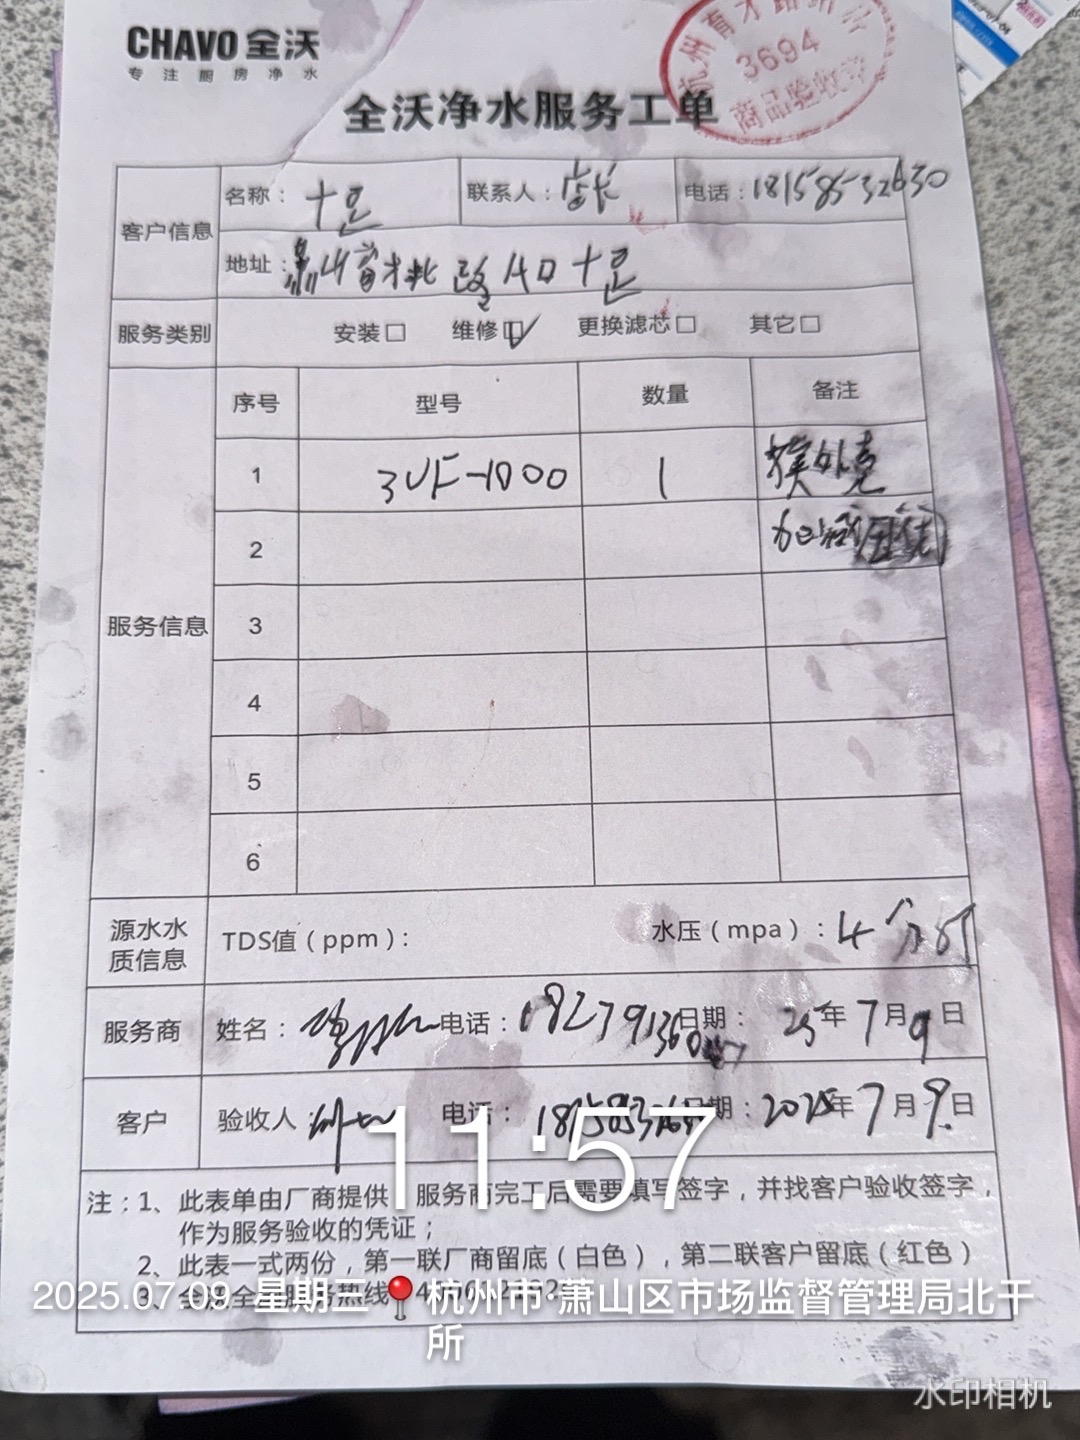 CHAVO 全沃
专注厨房净水
全沃净水服务工单
3694
商品验收章
客户信息
名称：十足 联系人：店长 电话：
地址：萧山育才北路入口十足
服务类别 安装□ 维修☑ 更换滤芯□ 其它□
服务信息
序号 型号 数量 备注
1 3UF-1000 1 换外壳
2 加减压阀
3
4
5
6
源水水质信息 TDS值（ppm）： 水压（mpa）：4
服务商 姓名： 电话： 日期：25年7月9日
客户 验收人： 电话： 日期：2025年7月9日
注：1、此表单由厂商提供，服务商完工后需要填写签字，并找客户验收签字，
作为服务验收的凭证；
2、此表一式两份，第一联厂商留底（白色），第二联客户留底（红色）
3、
11:57
2025.07.09 星期三 杭州市·萧山区市场监督管理局北干
所
水印相机